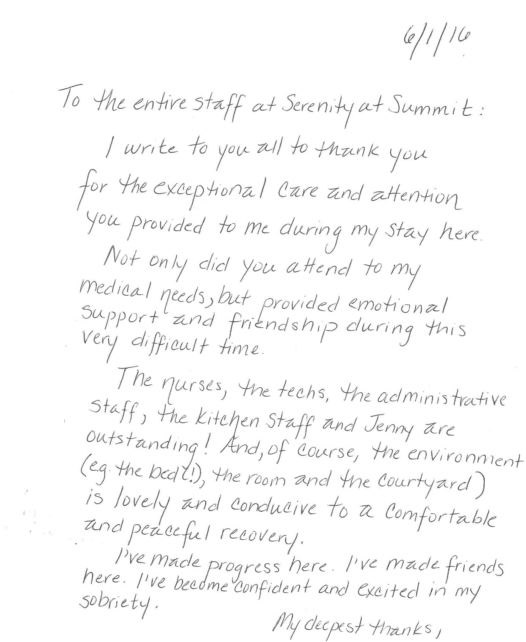 6/1/16
To the entire staff at Serenity at Summit:
I write to you all to thank you
for the exceptional care and attention
you provided to me during my stay here.
Not only did you attend to my
medical needs, but provided emotional
support and friendship during this
very difficult time.
The nurses, the techs, the administrative
staff, the kitchen staff and Jenny are
outstanding! And, of course, the environment
(eg. the bed!), the room and the courtyard)
is lovely and conducive to a comfortable
and peaceful recovery.
I've made progress here. I've made friends
here. I've become confident and excited in my
sobriety.
My deepest thanks,